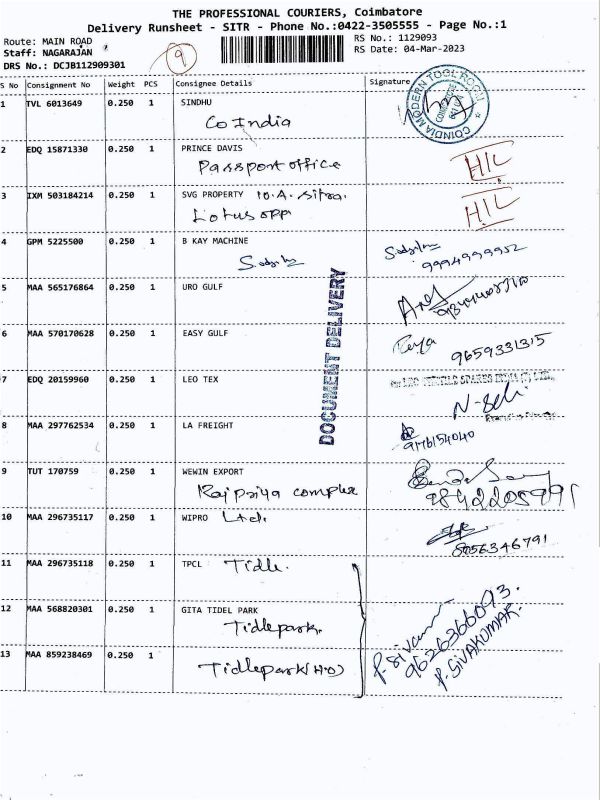 THE PROFESSIONAL COURIERS, Coimbatore
Delivery Runsheet - SITR - Phone No.:0422-3505555 - Page No.:1
Route: MAIN ROAD
Staff: NAGARAJAN
DRS No.: DCJB112909301
9
RS No.: 1129093
RS Date: 04-Mar-2023
S No Consignment No Weight PCS Consignee Details Signature
1 TVL 6013649 0.250 1 SINDHU
CoIndia
COINDIA MODERN TOOL ROOM
2 EDQ 15871330 0.250 1 PRINCE DAVIS
Passport office
H/L
3 IXM 503184214 0.250 1 SVG PROPERTY
Lotus opp
H/L
4 GPM 5225500 0.250 1 B KAY MACHINE
9994999952
5 MAA 565176864 0.250 1 URO GULF
6 MAA 570170628 0.250 1 EASY GULF
9659331315
7 EDQ 20159960 0.250 1 LEO TEX
8 MAA 297762534 0.250 1 LA FREIGHT
9 TUT 170759 0.250 1 WEWIN EXPORT
Rajpriya complex
9842205991
10 MAA 296735117 0.250 1 WIPRO Ltd.
8056346791
11 MAA 296735118 0.250 1 TPCL Tidle.
12 MAA 568820301 0.250 1 GITA TIDEL PARK
Tidlepark.
13 MAA 859238469 0.250 1
Tidlepark(H.O)
9626366093.
P. SIVAKUMAR.
DOCUMENT DELIVERY